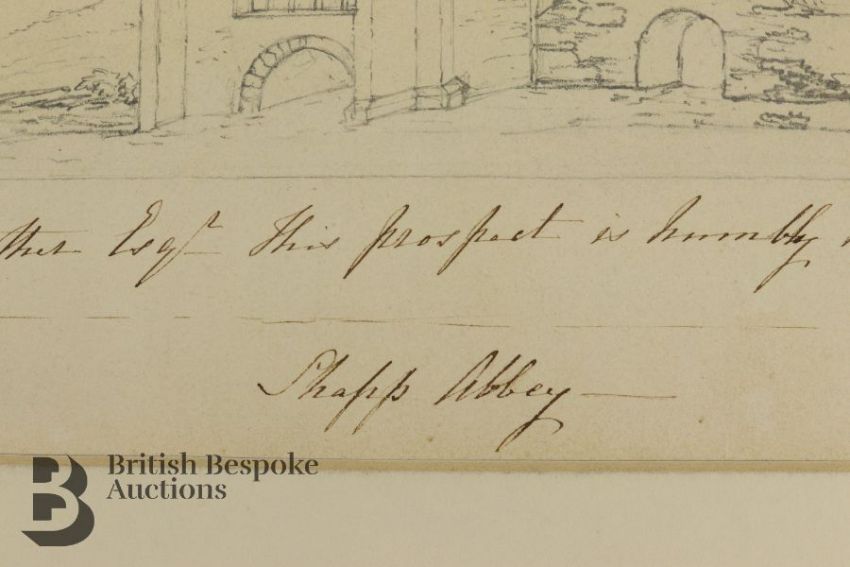 ther Esqr This prospect is humbly
Shapp Abbey
British Bespoke
Auctions